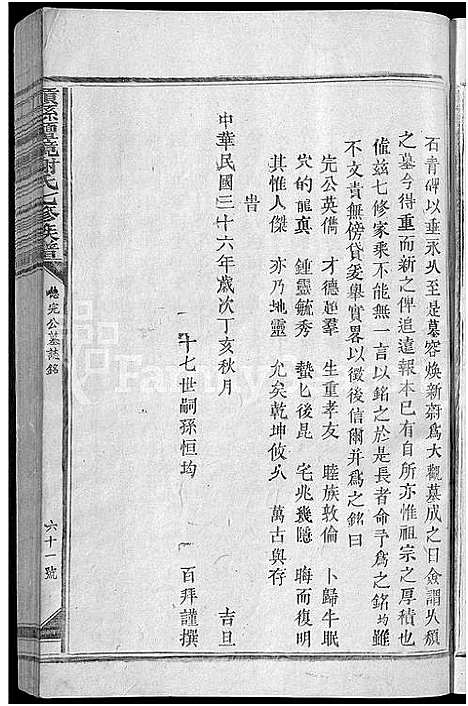 石青碑以垂永久至是墓容煥新蔚為大觀墓成之日僉謂久頹
之墓今得重而新之俾追遠報本已有自所亦惟祖宗之厚積也
值茲七修家乘不能無一言以銘之於是長者命予為之銘均雖
不文責無傍貸爰舉實畧以徵後信爾并為之銘曰
完公英儁 才德超羣 生重孝友 睦族敦倫 卜歸牛眠
穴的龍真 鍾靈毓秀 蟄蟄後昆 宅兆幾隱 晦而復明
其惟人傑 亦乃地靈 允矣乾坤攸久 萬古與存
旹
中華民國三十六年歲次丁亥秋月 吉旦
十七世嗣孫恒均 百拜謹撰
譚境謝氏七修族譜
完公墓誌銘
六十一號